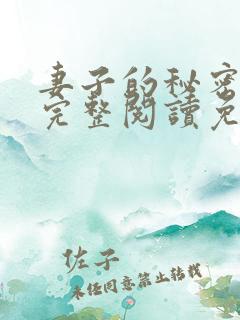 妻子的秘密
完整閱讀免
佐子
未经同意禁止转载